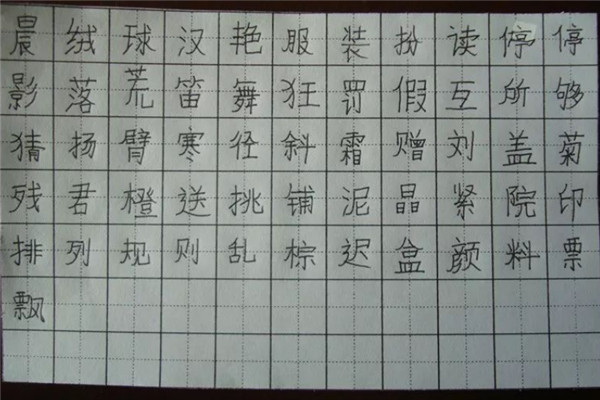 晨绒球汉艳服装扮读停停
影落荒笛舞狂罚假互所够
猜扬臂寒径斜霜赠刘盖菊
残君橙送挑铺泥晶紧院印
排列规则乱棕迟盒颜料票
飘